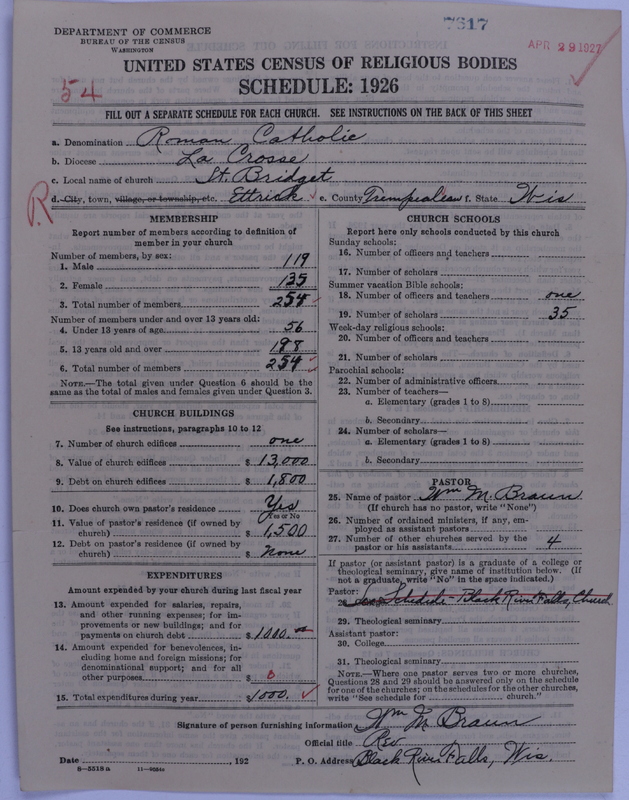 DEPARTMENT OF COMMERCE
BUREAU OF THE CENSUS
WASHINGTON
7617
APR 29 1927
UNITED STATES CENSUS OF RELIGIOUS BODIES
SCHEDULE: 1926
54
FILL OUT A SEPARATE SCHEDULE FOR EACH CHURCH. SEE INSTRUCTIONS ON THE BACK OF THIS SHEET
a. Denomination Roman Catholic
b. Diocese La Crosse
c. Local name of church St. Bridget
R
d. City, town, village, or township, etc. Ettrick e. County Trempealeau f. State Wis
MEMBERSHIP
Report number of members according to definition of
member in your church
Number of members, by sex:
1. Male 119
2. Female 135
3. Total number of members 254
Number of members under and over 13 years old:
4. Under 13 years of age 56
5. 13 years old and over 198
6. Total number of members 254
NOTE.—The total given under Question 6 should be
same as the total of males and females given under Question 3.
CHURCH BUILDINGS
See instructions, paragraphs 10 to 12
7. Number of church edifices one
8. Value of church edifices $ 13,000
9. Debt on church edifices $ 1,800
10. Does church own pastor's residence Yes
Yes or No
11. Value of pastor's residence (if owned by
church) $ 1,500
12. Debt on pastor's residence (if owned by
church) $ None
EXPENDITURES
Amount expended by your church during last fiscal year
13. Amount expended for salaries, repairs,
and other running expenses; for im-
provements or new buildings; and for
payments on church debt $ 1000.
14. Amount expended for benevolences, in-
cluding home and foreign missions; for
denominational support; and for all
other purposes $ 0
15. Total expenditures during year $ 1000.
CHURCH SCHOOLS
Report here only schools conducted by this church
Sunday schools:
16. Number of officers and teachers
17. Number of scholars
Summer vacation Bible schools:
18. Number of officers and teachers one
19. Number of scholars 35
Week-day religious schools:
20. Number of officers and teachers
21. Number of scholars
Parochial schools:
22. Number of administrative officers
23. Number of teachers—
a. Elementary (grades 1 to 8)
b. Secondary
24. Number of scholars—
a. Elementary (grades 1 to 8)
b. Secondary
PASTOR
25. Name of pastor Wm M. Braun
(If church has no pastor, write "None")
26. Number of ordained ministers, if any, em-
ployed as assistant pastors
27. Number of other churches served by the
pastor or his assistants 4
If pastor (or assistant pastor) is a graduate of a college or
theological seminary, give name of institution below. (If
not a graduate, write "No" in the space indicated.)
Pastor:
28 See Schedule - Black River Falls, Church
29. Theological seminary
Assistant pastor:
30. College
31. Theological seminary
NOTE.—Where one pastor serves two or more churches,
Questions 28 and 29 should be answered only on the schedule
for one of the churches; on the schedules for the other churches,
write "See schedule for church."
Signature of person furnishing information Wm M. Braun
Official title Rev
Date , 192 P. O. Address Black River Falls, Wis.
8—5518a